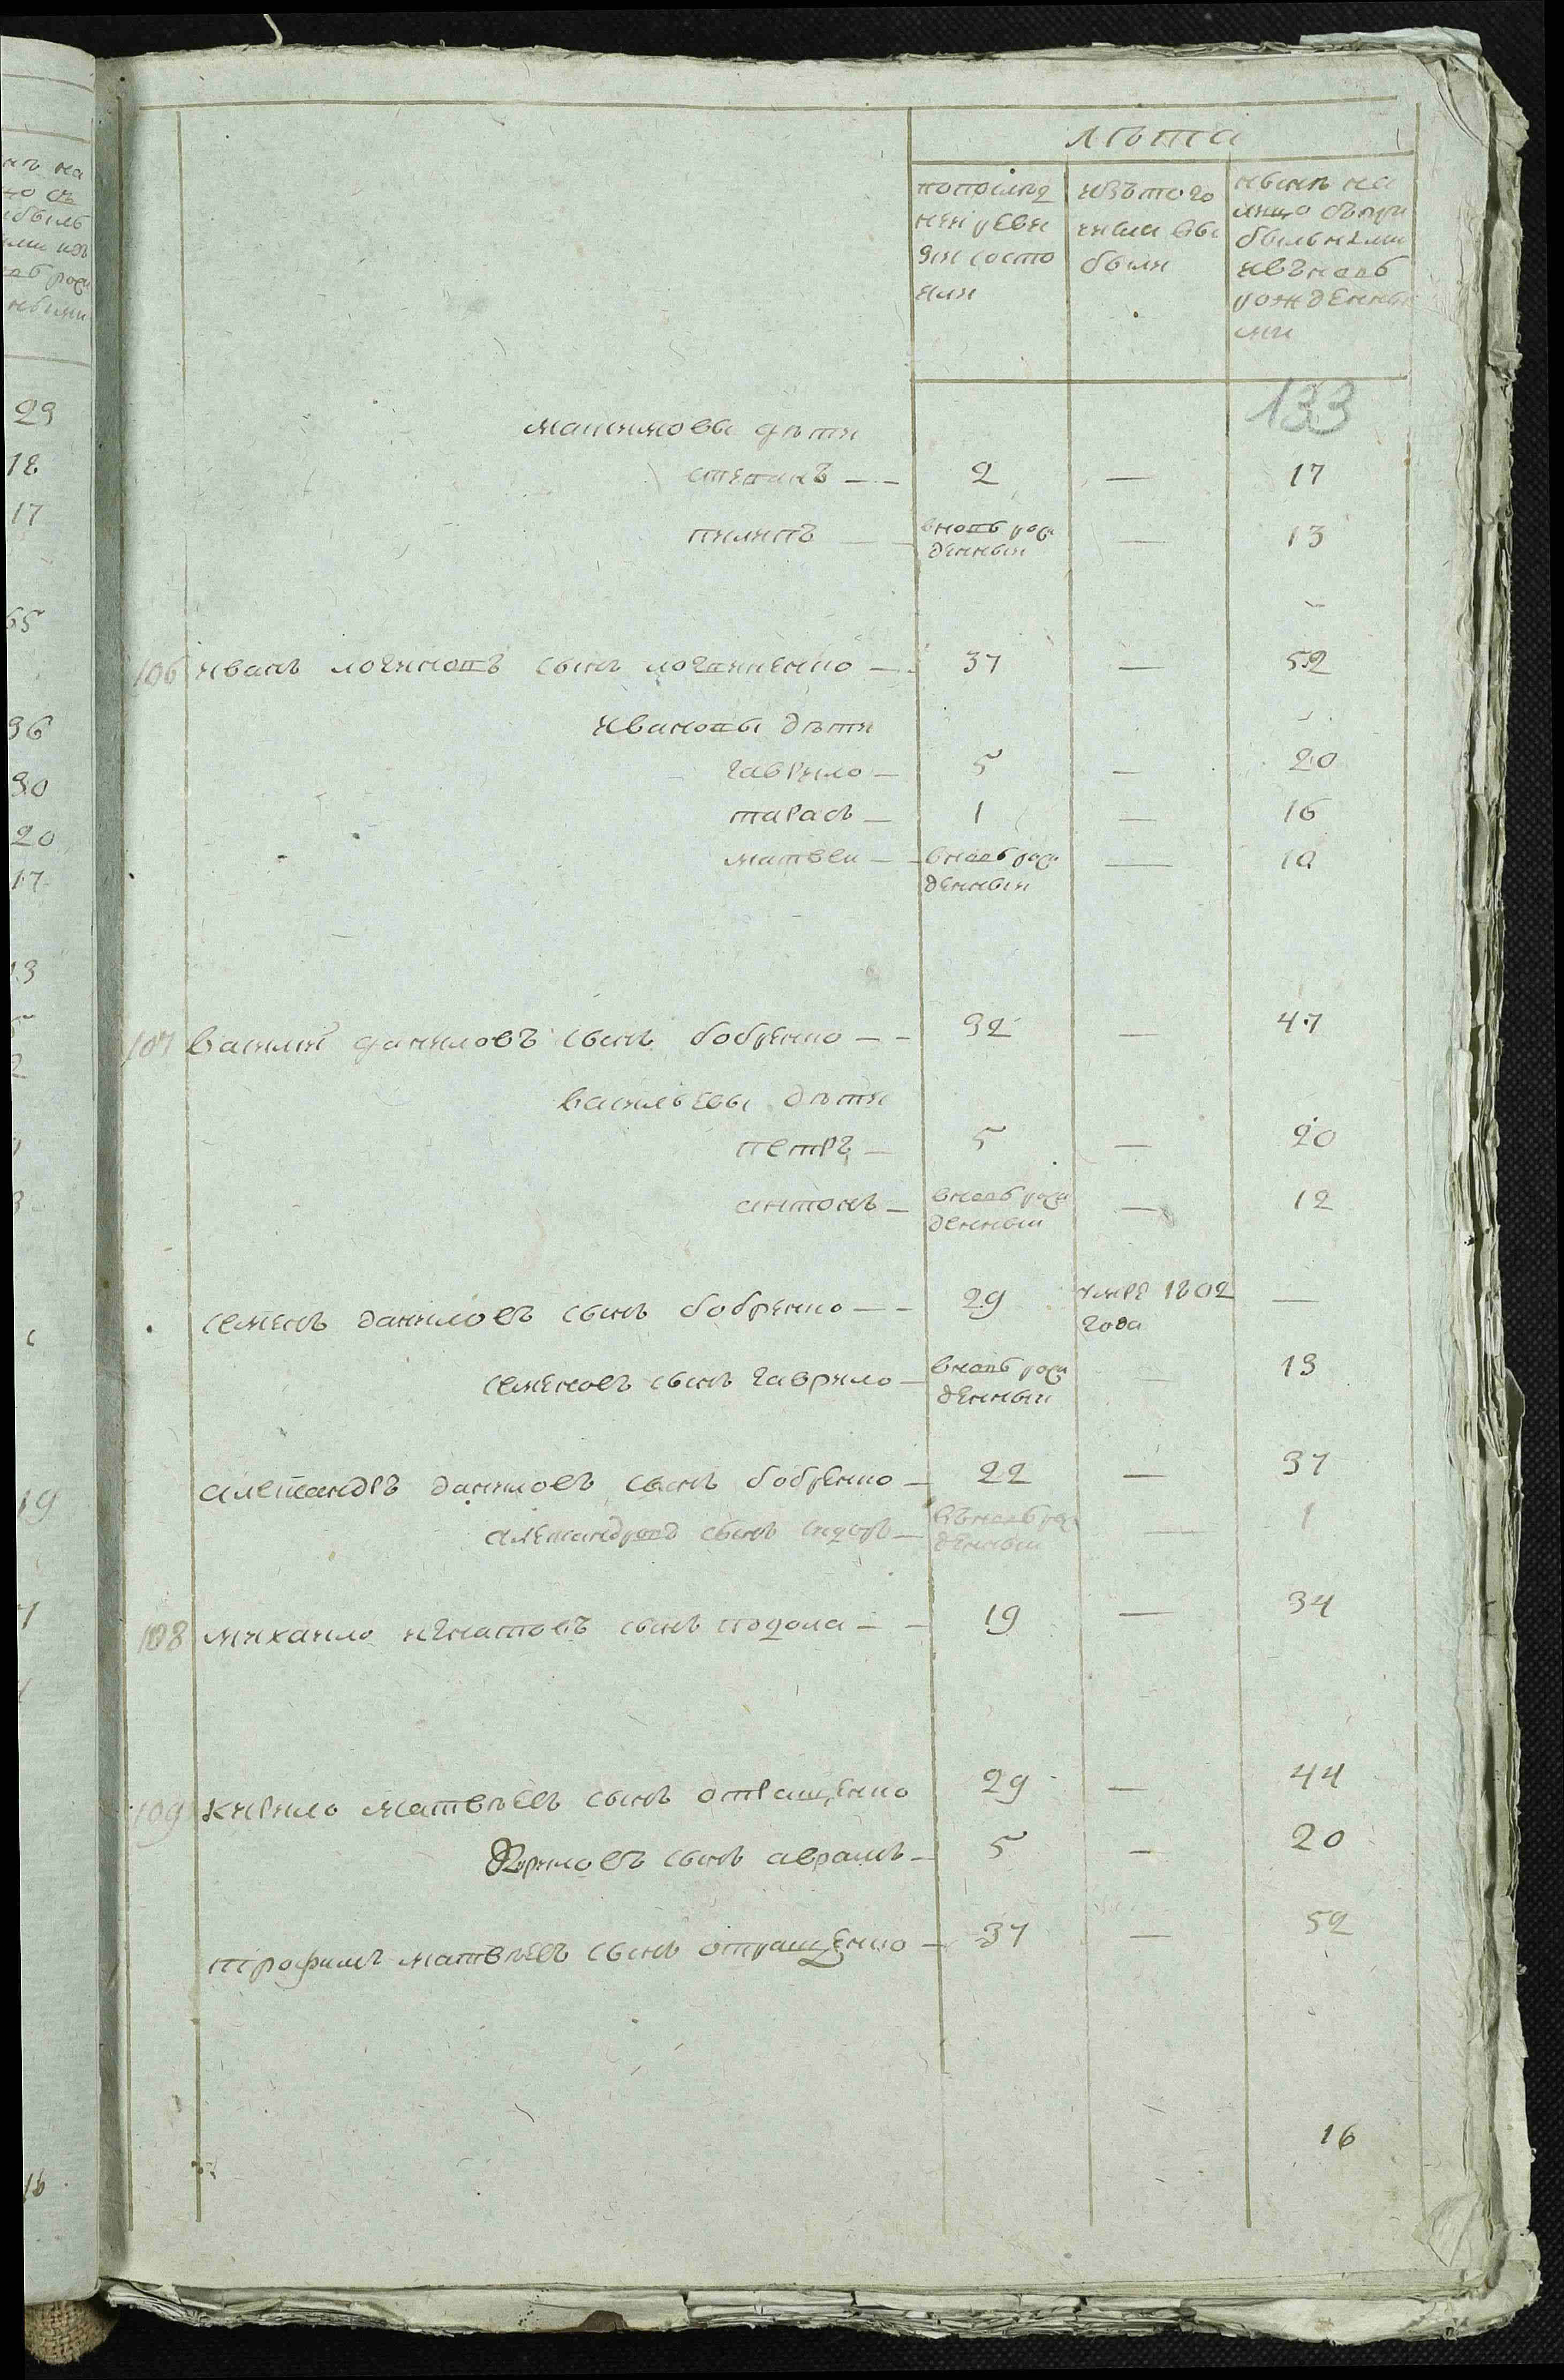 лѣта
попослед
ней реви
зіи состо
яли
изътого
числа вы
были
нынѣ на
лицо съпри
былыми
ивъновь
рожденны
ми
133
степанъ — — 2 — 17
пилипъ — — вновь рож
денный — 13
106 иванъ логиновъ сынъ — 37 — 52
ивановы дѣти
гаврило — 5 — 20
тарасъ — 1 — 16
матвеи — вновь рож
денный — 10
107 василий даниловъ сынъ бобренко — — 32 — 47
васильевы дѣти
петръ — 5 — 20
антонъ — вновь рож
денныи — 12
семенъ даниловъ сынъ бобренко — — 29 умре 1802
года —
семеновъ сынъ гаврило — вновь рож
денныи — 13
александръ даниловъ сынъ бобренко — 22 — 37
александровъ сынъ — вьновь рож
денныи — 1
108 михаило игнатовъ сынъ подола — — 19 — 34
109 кирило матвѣевъ сынъ отращенко 29 — 44
Кириловъ сынъ аврамъ — 5 — 20
трофимъ матвѣевъ сынъ отращенко — 37 — 52
16
29
18
17
36
30
20
17
13
19